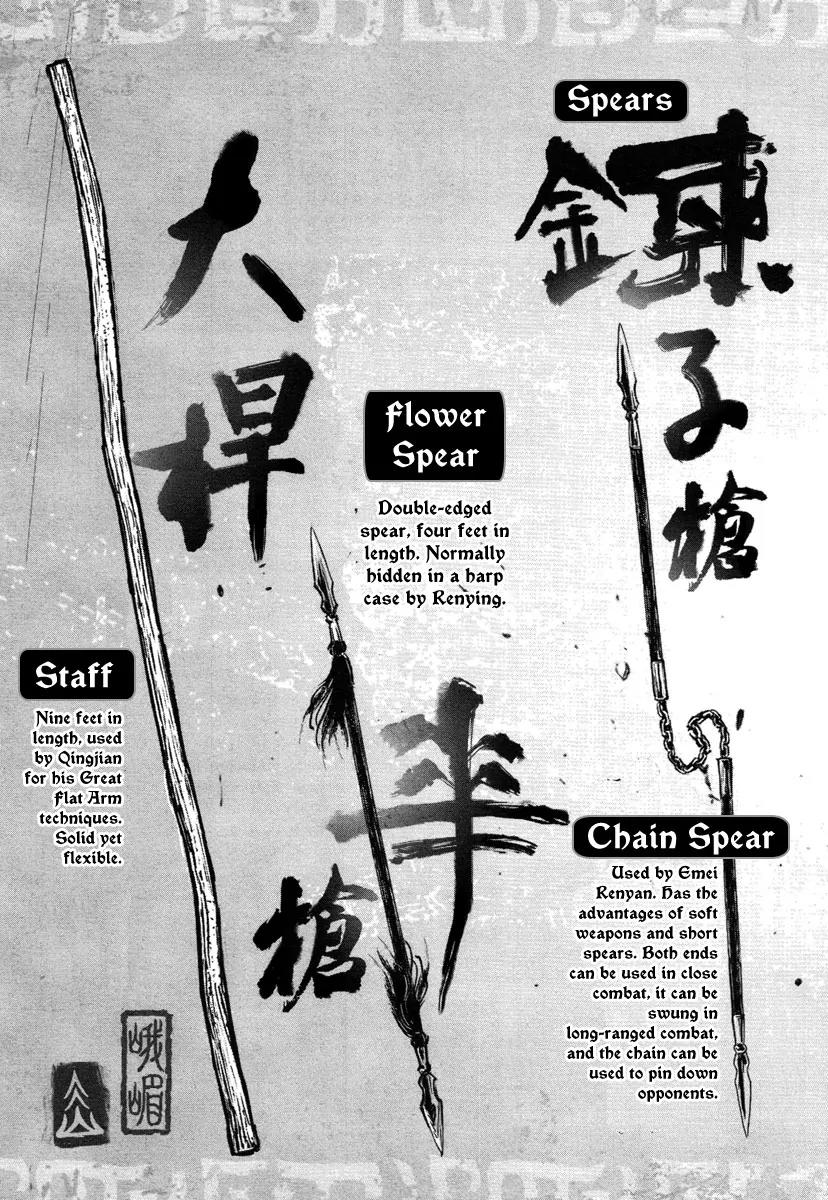 Spears
大
桿
鍊
子
槍
Flower
Spear
Double-edged
spear, four feet in
length. Normally
hidden in a harp
case by Renying.
槍
Staff
Nine feet in
length, used
by Qingjian
for his Great
Flat Arm
techniques.
Solid yet
flexible.
Chain Spear
Used by Emei
Renyan. Has the
advantages of soft
weapons and short
spears. Both ends
can be used in close
combat, it can be
swung in
long-ranged combat,
and the chain can be
used to pin down
opponents.
峨嵋